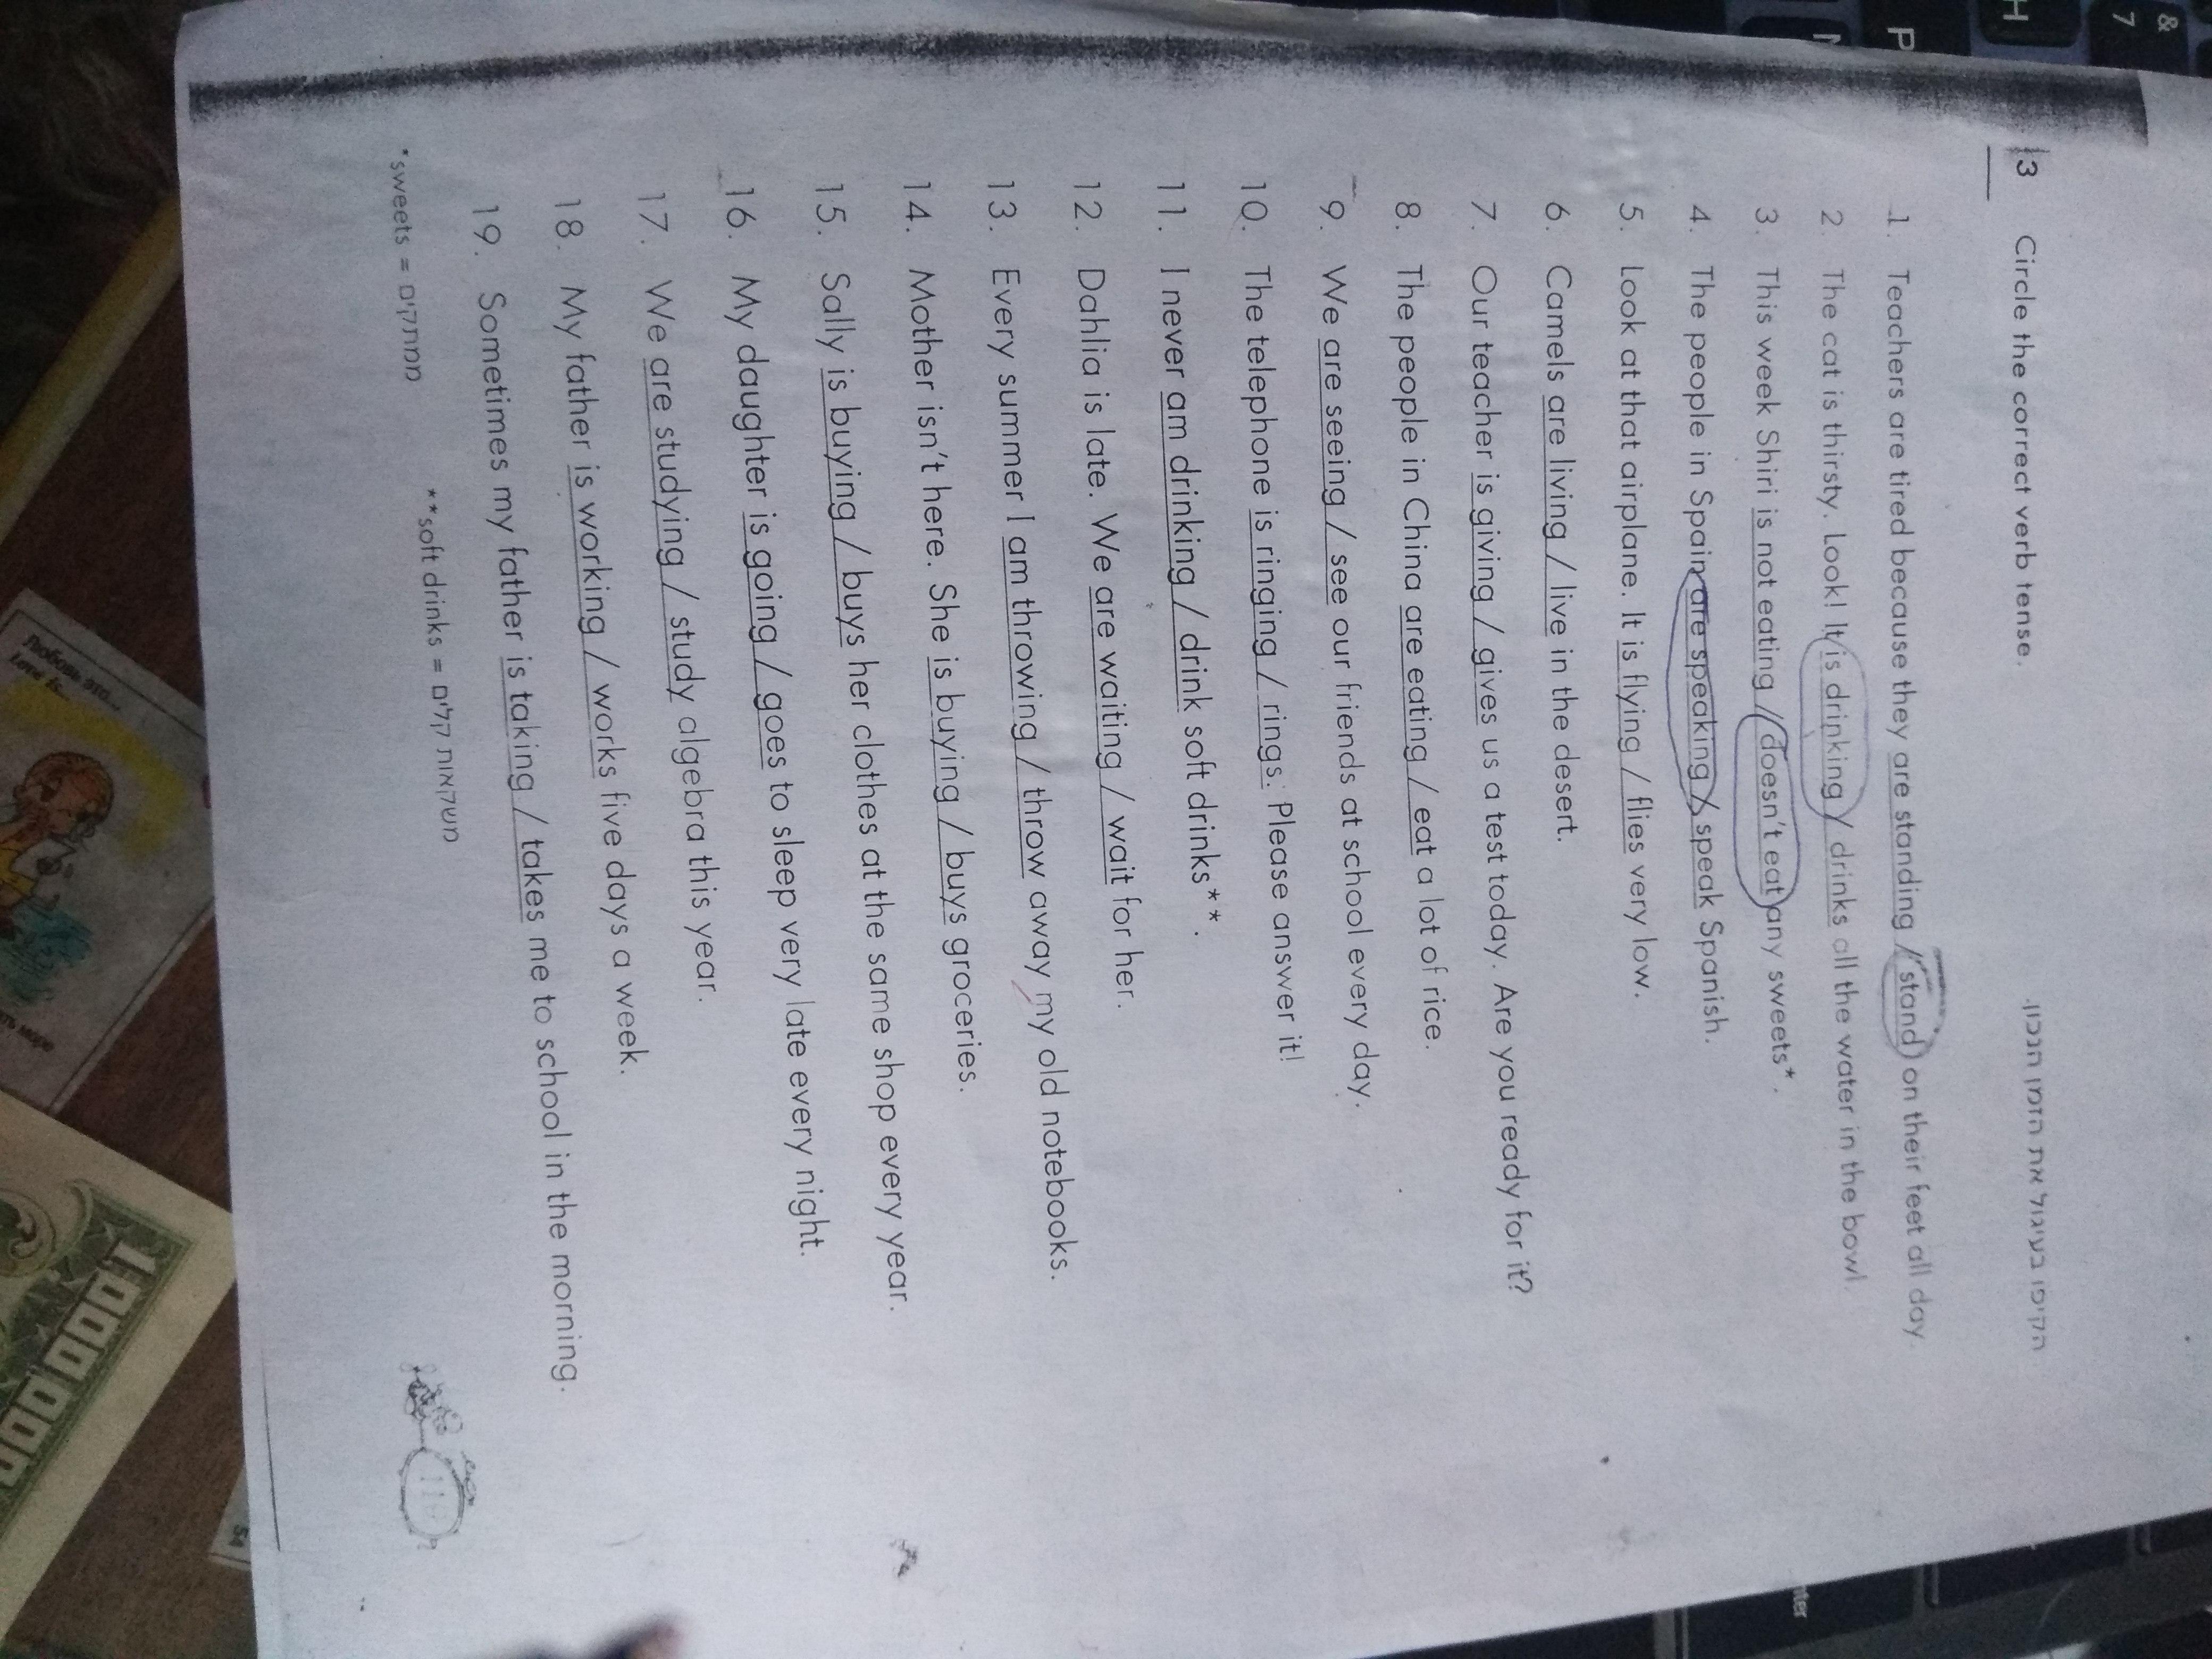 13 Circle the correct verb tense. הקיפו בעיגול את הזמן הנכון.
1. Teachers are tired because they are standing / stand on their feet all day.
2. The cat is thirsty. Look! It is drinking / drinks all the water in the bowl.
3. This week Shiri is not eating / doesn't eat any sweets*.
4. The people in Spain are speaking / speak Spanish.
5. Look at that airplane. It is flying / flies very low.
6. Camels are living / live in the desert.
7. Our teacher is giving / gives us a test today. Are you ready for it?
8. The people in China are eating / eat a lot of rice.
9. We are seeing / see our friends at school every day.
10. The telephone is ringing / rings. Please answer it!
11. I never am drinking / drink soft drinks**.
12. Dahlia is late. We are waiting / wait for her.
13. Every summer I am throwing / throw away my old notebooks.
14. Mother isn't here. She is buying / buys groceries.
15. Sally is buying / buys her clothes at the same shop every year.
16. My daughter is going / goes to sleep very late every night.
17. We are studying / study algebra this year.
18. My father is working / works five days a week.
19. Sometimes my father is taking / takes me to school in the morning.
*sweets = ממתקים **soft drinks = משקאות קלים
11
Любовь это...
Love is...
54
&
7
H
P